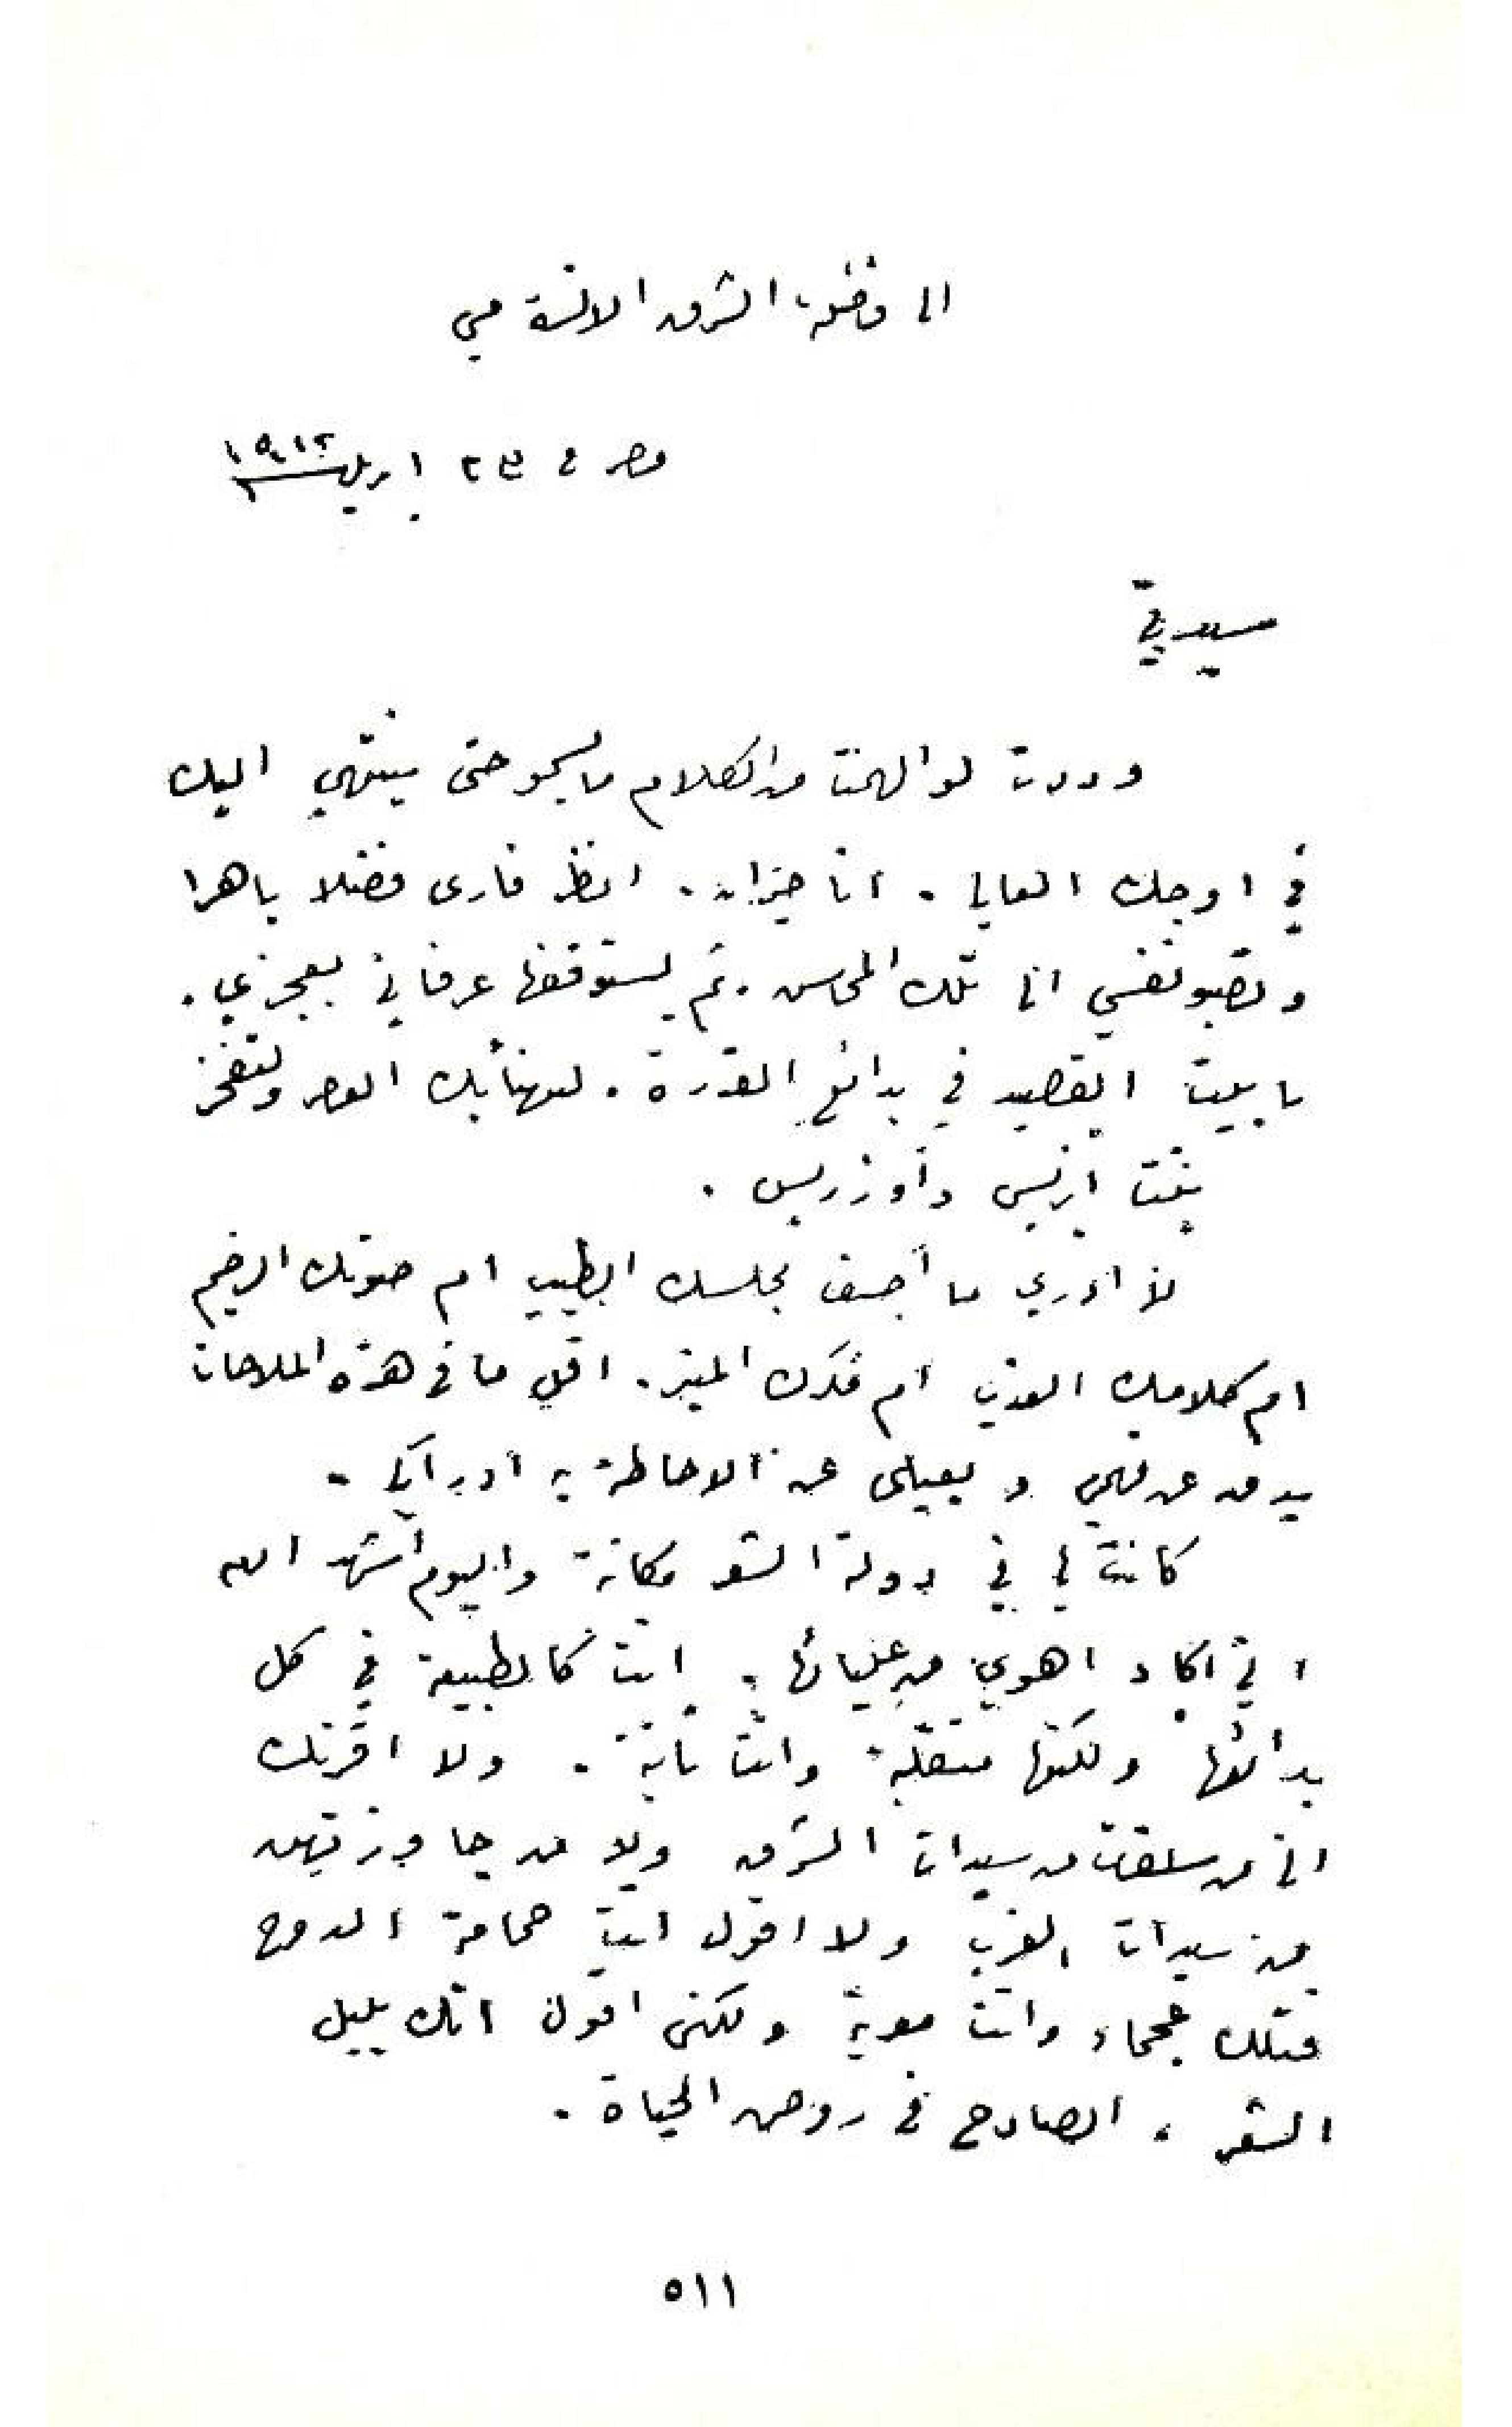 الى فاضلة الشرق الانسة مي
مصر في ٢٣ ابريل ١٩١٢
سيدتي
وددت لو الهمت من الكلام ما يسمو حتى ينتهي اليك
في اوجك العالي . انا حيران . انظر فارى فضلا باهرا
وتصبو نفسي الى تلك المحاسن . ثم يستوقفها عرفاني بعجزي .
يا بيت القصيد في بدائع القدرة . ليهنأ بك العصر ولتفخر
بنت ازيس وأوزريس .
لا ادري ما أصف مجلسك الطيب ام صوتك الرخيم
ام كلامك العذب أم فكرك المنير . اقل ما في هذه الملاحات
يدق عن فهمي و يعيى عن الاحاطة به ادراكي .
كانت لي في دولة الشعر مكانة واليوم أشهد الله
اني اكاد اهوي من عليائها . انت كالطبيعة في كل
بدائعها ولكنها متقلبة وانت ثابتة . ولا اقرنك
الى من سلفت من سيدات الشرق ولا من جاورتهن
من سيدات الغرب ولا اقول انت حمامة الدوح
فتلك عجماء وانت معربة ولكني اقول انك بلبل
الشعر ، الصادح في روض الحياة .
٥١١